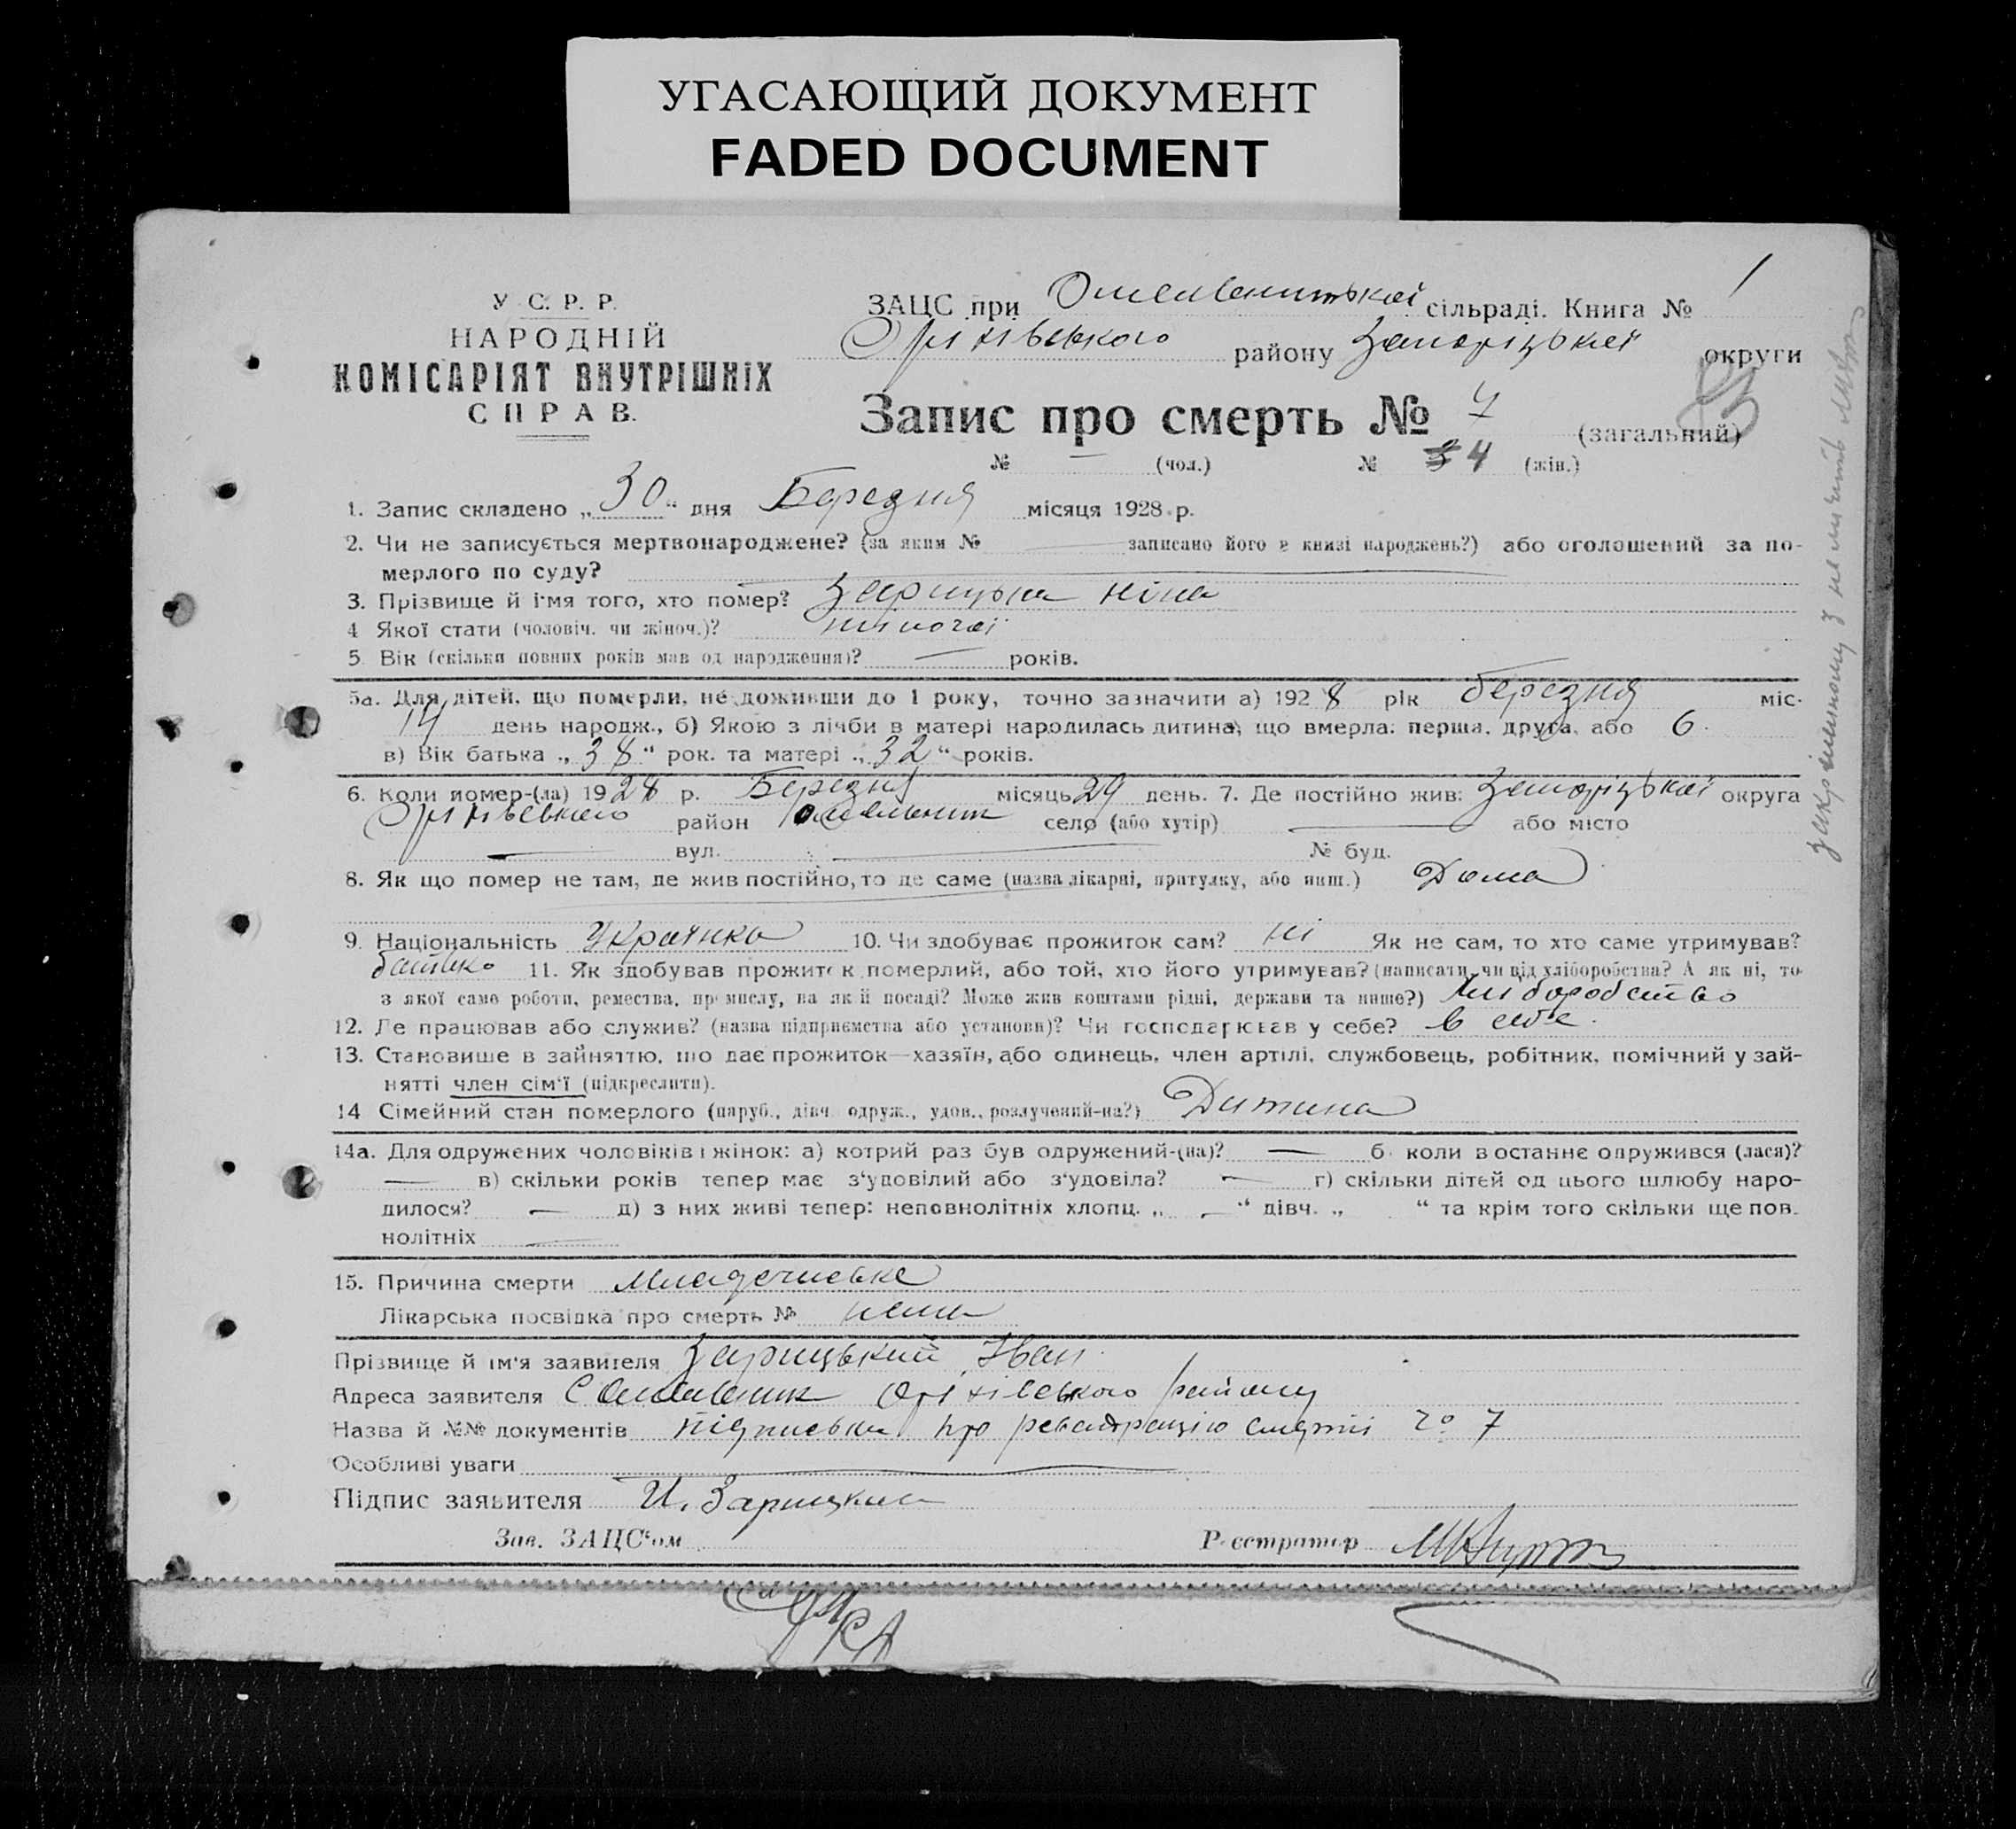 УГАСАЮЩИЙ ДОКУМЕНТ
FADED DOCUMENT
У. С. Р. Р.
НАРОДНІЙ
КОМІСАРІЯТ ВНУТРІШНІХ
СПРАВ.
ЗАЦС при Омельницької сільраді. Книга № 1
Оріхівського району Запоріцької округи
Запис про смерть № 7 (загальний)
№ — (чол.) № 4 (жін.)
1. Запис складено „30“ дня Березня місяця 1928 р.
2. Чи не записується мертвонароджене? (за яким № — записано його в книзі народжень?) або оголошений за по-
мерлого по суду? —
3. Прізвище й ім'я того, хто помер? Зарицька Ніна
4 Якої стати (чоловіч. чи жіноч.)? жіночої
5. Вік (скільки повних років мав од народження)? — років.
5а. Для дітей, що померли, не доживши до 1 року, точно зазначити а) 1928 рік березня міс.
14 день народж., б) Якою з лічби в матері народилась дитина, що вмерла: перша, друга, або 6.
в) Вік батька „38“ рок. та матері „32“ років.
6. Коли помер-(ла) 1928 р. Березня місяць 29 день. 7. Де постійно жив: Запоріцької округа
Оріхівського район Омельник село (або хутір) — або місто
— вул. — № буд.
8. Як що помер не там, де жив постійно, то де саме (назва лікарні, притулку, або инш.) Дома
9. Національність Українка 10. Чи здобуває прожиток сам? ні Як не сам, то хто саме утримував?
батько 11. Як здобував прожиток померлий, або той, хто його утримував? (написати чи від хліборобства? А як ні, то
з якої само роботи, ремества, промислу, на якій посаді? Може жив коштами рідні, держави та инше?) Хліборобство
12. Де працював або служив? (назва підприємства або установи)? Чи господарював у себе? в себе.
13. Становище в зайняттю, що дає прожиток—хазяїн, або одинець, член артілі, службовець, робітник, помічний у зай-
нятті член сім'ї (підкреслити).
14 Сімейний стан померлого (паруб., дівч. одруж., удов., розлучений-на?) Дитина
14а. Для одружених чоловіків і жінок: а) котрий раз був одружений-(на)? — б. коли востаннє одружився (лася)?
— в) скільки років тепер має з'удовілий або з'удовіла? — г) скільки дітей од цього шлюбу наро-
дилося? — д) з них живі тепер: неповнолітніх хлопц. „ — “ дівч. „ “ та крім того скільки ще пов.
нолітніх —
15. Причина смерти Младенчиське
Лікарська посвідка про смерть № нема
Прізвище й ім'я заявителя Зарицький Іван
Адреса заявителя С Омельник Оріхівського району
Назва й №№ документів підписька про реєстрацію смерти 7
Особливі уваги —
Підпис заявителя И. Зарицкий
Зав. ЗАЦС'ом
Реєстратор